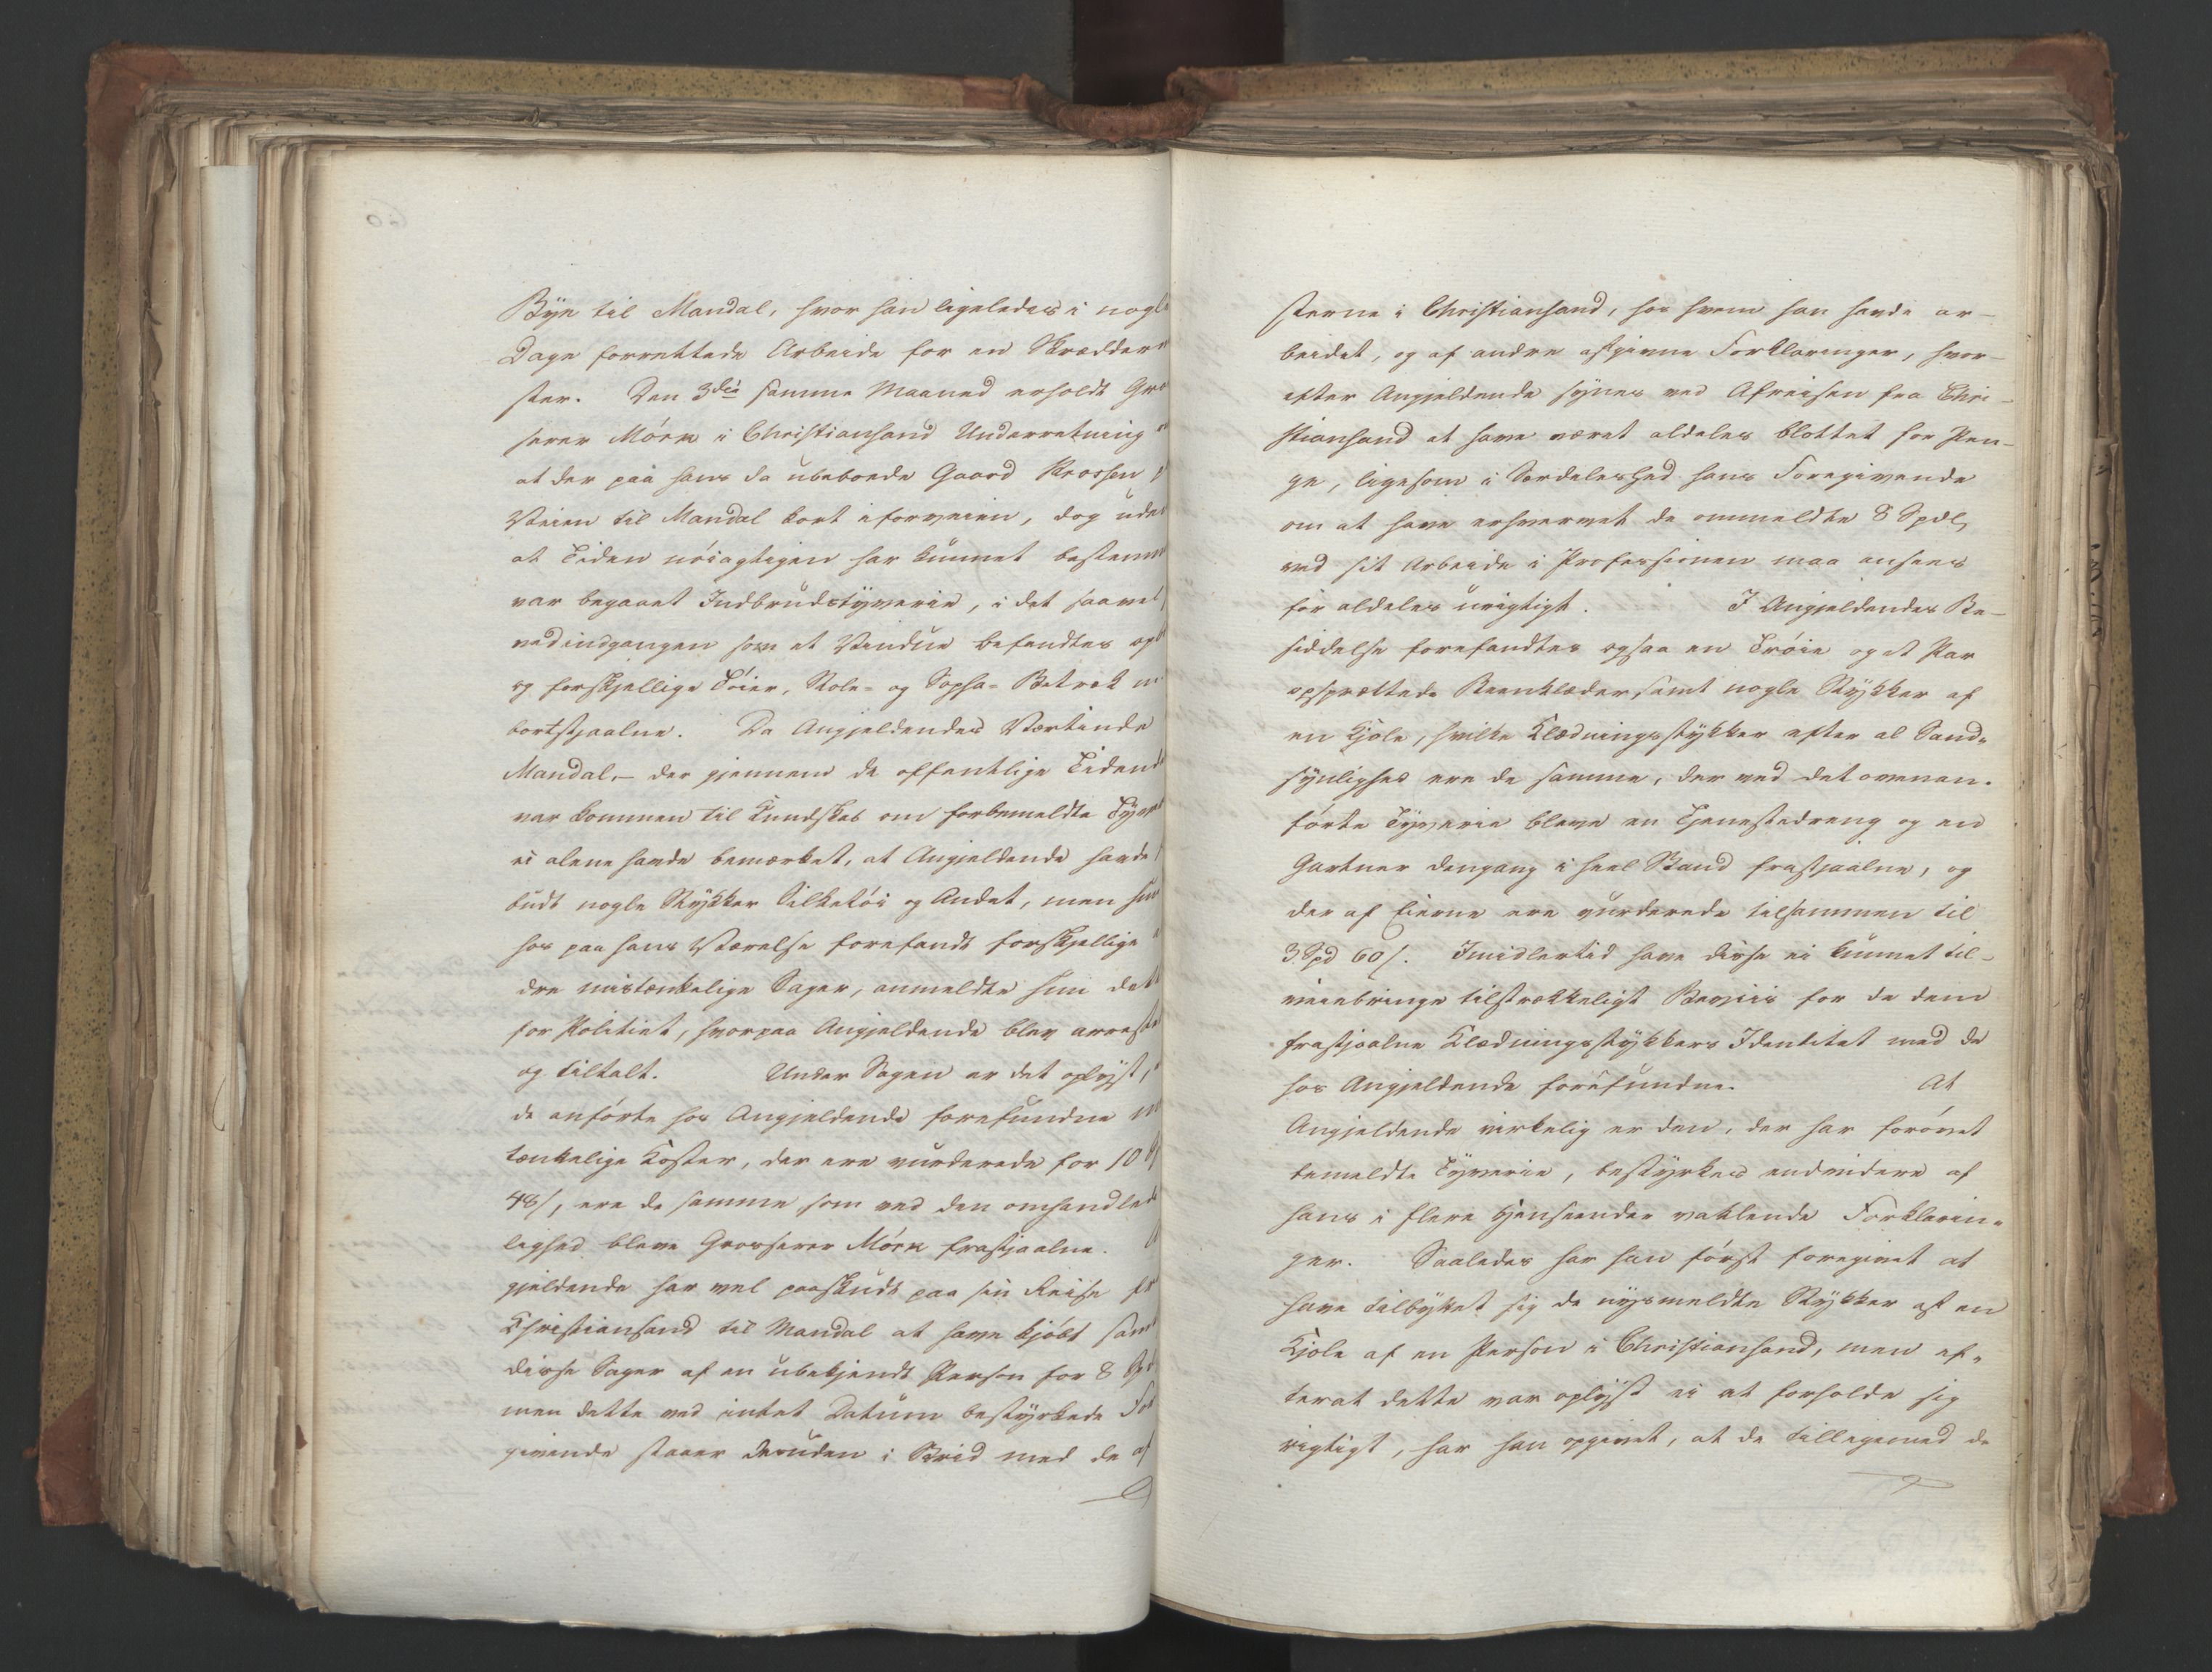 Byen til Mandal, hvor han ligeledes i nogle
Dage forrettede Arbeide for en Skrædder
ster. Den 3die samme Maaned erholdt Gro
serer Mörk i Christiansand Underretning
at der paa hans da ubeboede Gaard Krossen
Veien til Mandal kort iforveien, dog uden
at Tiden nöiagtigen har kunnet bestemm
var begaaet Indbrudstyverie, i det saavel
ved indgangen som et Vindue befandtes op
og forskjellige Töier, Stole- og Sopha- Betræk
bortstjaalne. Da Angjeldendes Værtinde
Mandal, der gjennem de offentlige Tidend
var kommen til Kundskab om forbemeldte Tyve
ei alene havde bemærket, at Angjeldende havde
budt nogle Stykker Silketöi og Andet, men hun
hos paa hans Værelse forefandt forskjellige
dre mistænkelige Sager, anmeldte hun dette
for Politiet, hvorpaa Angjeldende blev arreste
og tiltalt. Under Sagen er det oplyst,
de anförte hos Angjeldende forefundne
tænkelige Koster, der ere vurderede for 10
48 s, ere de samme som ved den omhandlede
lighed bleve Grosserer Mörk frastjaalne.
gjeldende har vel paaskudt paa sin Reise fr
Christiansand til Mandal at have kjöbt sam
disse Sager af en ubekjendt Person for 8 Sp
men dette ved intet Datum bestyrkede For
givende staaer desuden i Strid med de af
sterne i Christiansand, hos hvem han havde ar-
beidet, og af andre afgivne Forklaringer, hvor-
efter Angjeldende synes ved Afreisen fra Chri-
stiansand at have været aldeles blottet for Pen-
ge, ligesom i Særdeleshed hans Foregivende
om at have erhvervet de ommeldte 8 Spdl,
ved sit Arbeide i Professionen maa ansees
for aldeles urigtigt. I Angjeldendes Be-
siddelse forefandtes ogsaa en Tröie og et Par
opsprættede Beenklæder, samt nogle Stykker af
en Kjole, hvilke Klædningsstykker efter al Sand-
synlighed ere de samme, der ved det ovenan-
förte Tyverie bleve en Tjenestedreng og en
Gartner dengang i heel Stand frastjaalne, og
der af Eierne ere vurderede tilsammen til
3 Spd 60 s. Imidlertid have disse ei kunnet til-
veiebringe tilstrækkeligt Beviis for de dem
frastjaalne Klædningsstykkers Identitet med de
hos Angjeldende forefundne. At
Angjeldende virkelig er den, der har forövet
bemeldte Tyverie, bestyrkes endvidere af
hans i flere Henseender vaklende Forklarin-
ger. Saaledes har han först foregivet at
have tilbyttet sig de nysmeldte Stykker af en
Kjole af en Person i Christiansand, men ef-
terat dette var oplyst ei at forholde sig
rigtigt, har han opgivet, at de tilligemed de